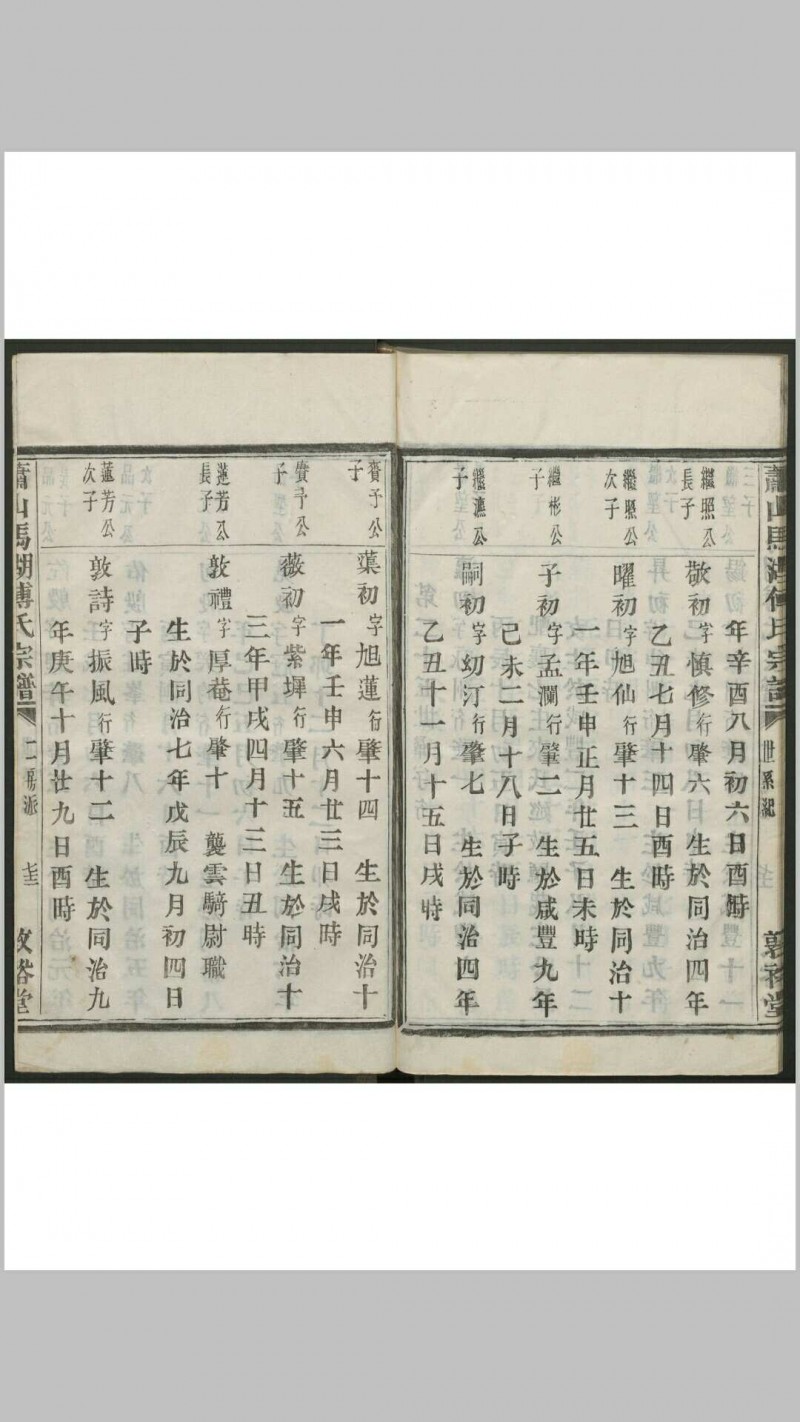 年辛酉八月初六日酉時
繼照公
長子
敬初字慎修行肇六 生於同治四年
乙丑七月十四日酉時
繼照公
次子
曜初字旭仙行肇十三 生於同治十
一年壬申正月廿五日未時
繼彬公
子
子初字孟瀾行肇二 生於咸豐九年
己未二月十八日子時
公
子
嗣初字幼汀行肇七 生於同治四年
乙丑十一月十五日戌時
賚予公
子
蕖初字旭蓮行肇十四 生於同治十
一年壬申六月廿三日戌時
賚予公
子
薇初字紫墀行肇十五 生於同治十
三年甲戌四月十三日丑時
蓮芳公
長子
敦禮字厚菴行肇十 襲雲騎尉職
生於同治七年戊辰九月初四日
子時
蓮芳公
次子
敦詩字振風行肇十二 生於同治九
年庚午十月廿九日酉時
蕭山馬湖傅氏宗譜 二房派